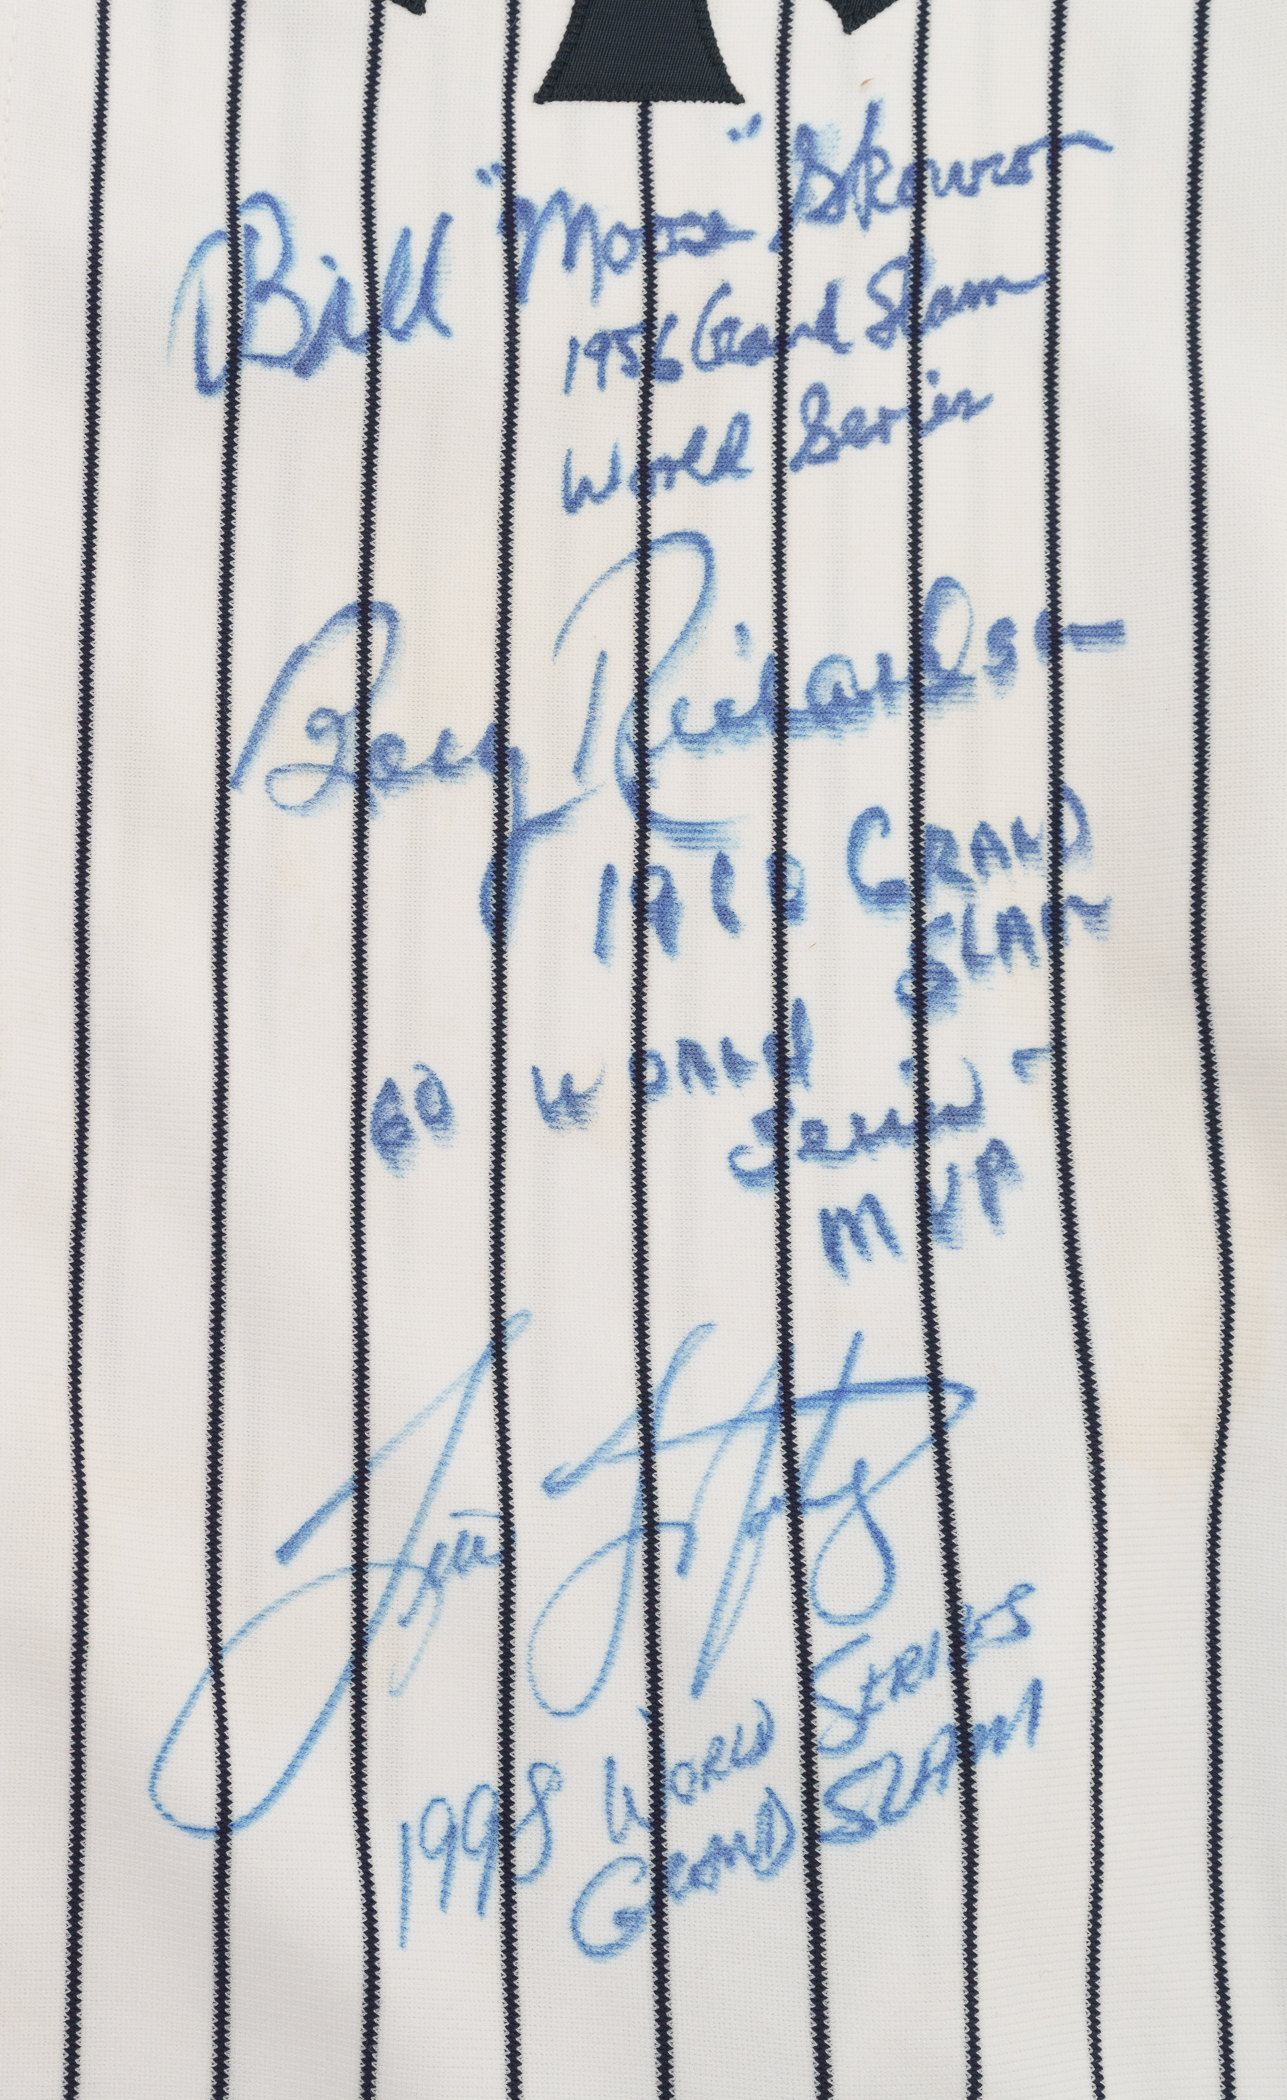 Bill "Moose" Skowron
1956 Grand Slam
World Series
Bobby Richardson
1960 GRAND
SLAM
60 WORLD
Series -
MVP
Tino Martinez
1998 WORLD SERIES
GRAND SLAM